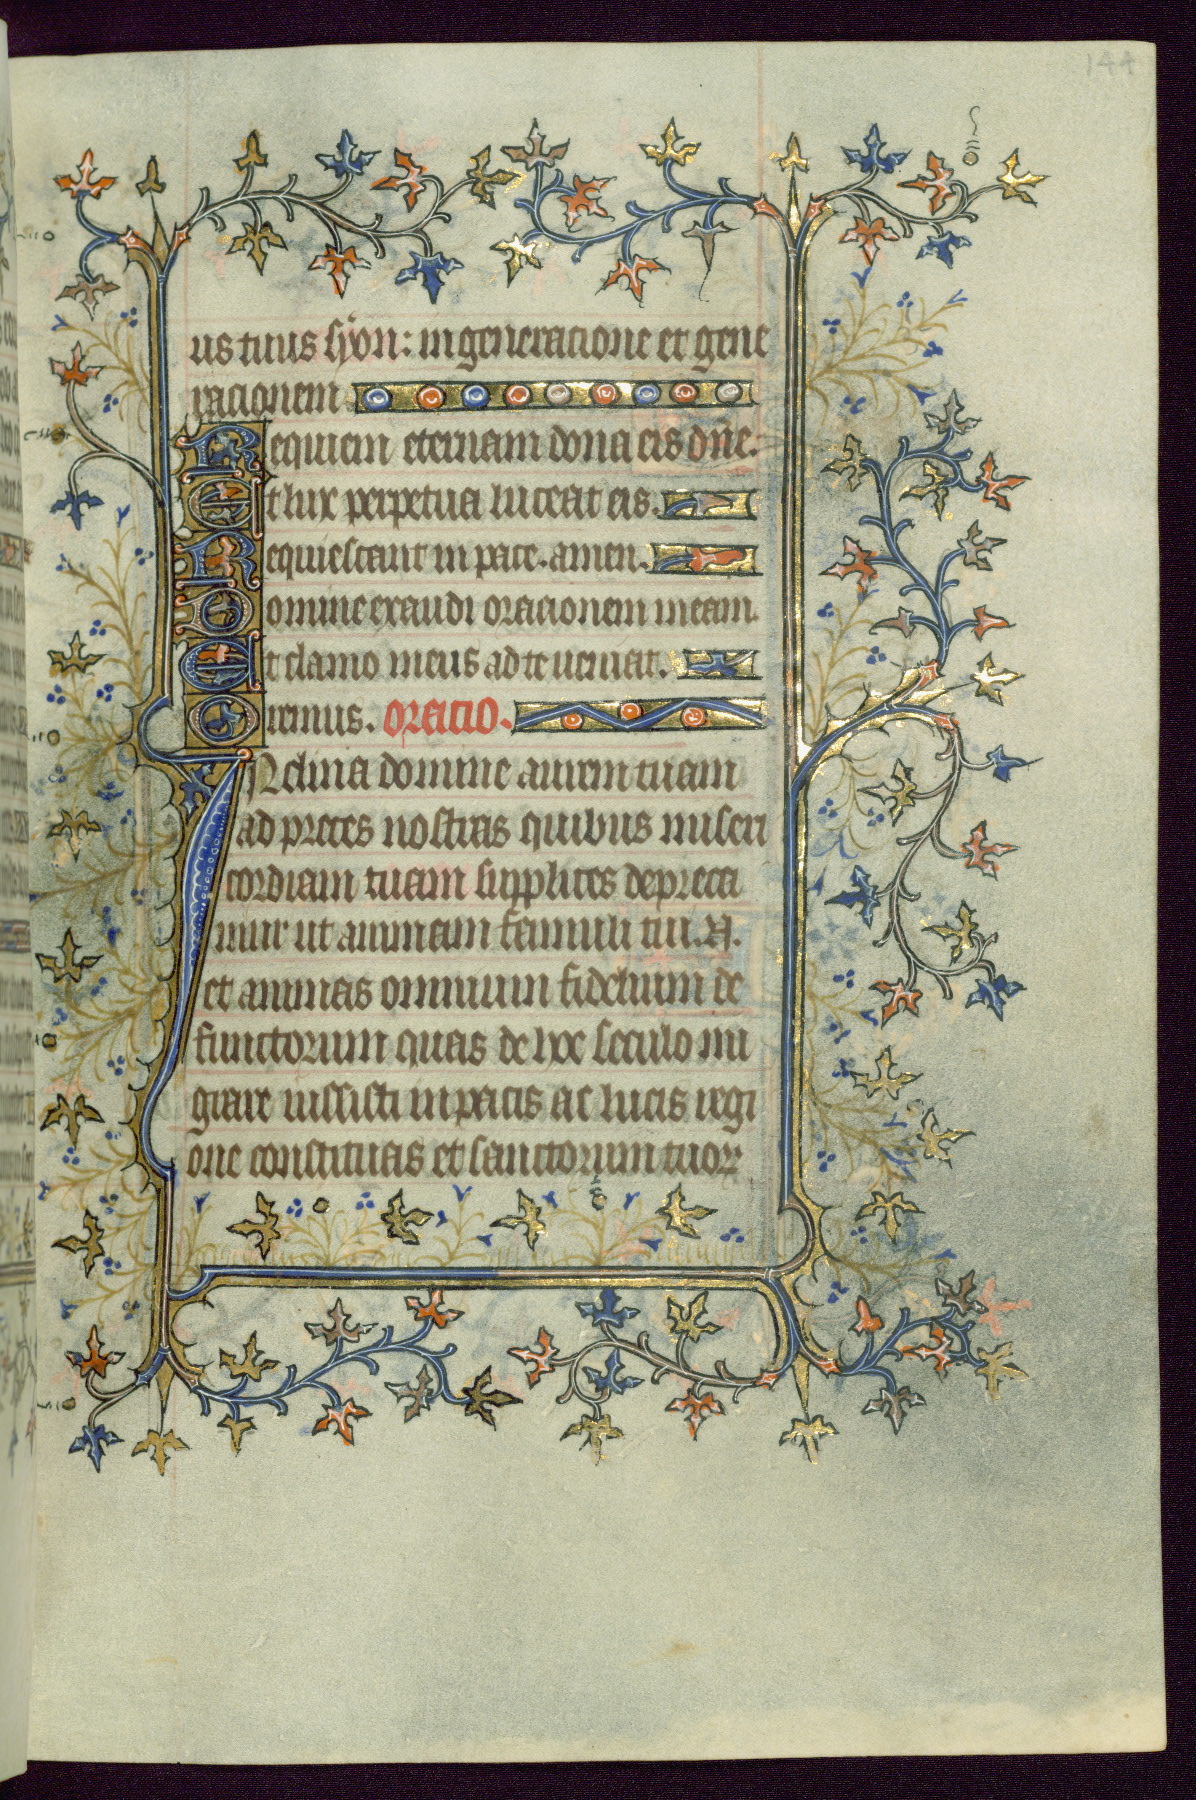 144
us tuus syon: in generacione et gene
racionem
Requiem eternam dona eis dñe:
Et lux perpetua luceat eis.
Requiescant in pace. amen.
Domine exaudi oracionem meam.
Et clamo meus ad te ueniat.
Oremus. Oracio.
INclina domine aurem tuam
ad preces nostras quibus miseri
cordiam tuam supplices depreca
mur ut animam famuli tui .N.
et animas omnium fidelium de
functorum quas de hoc seculo mi
grare iussisti in pacis ac lucis regi
one constituas et sanctorum tuoꝝ